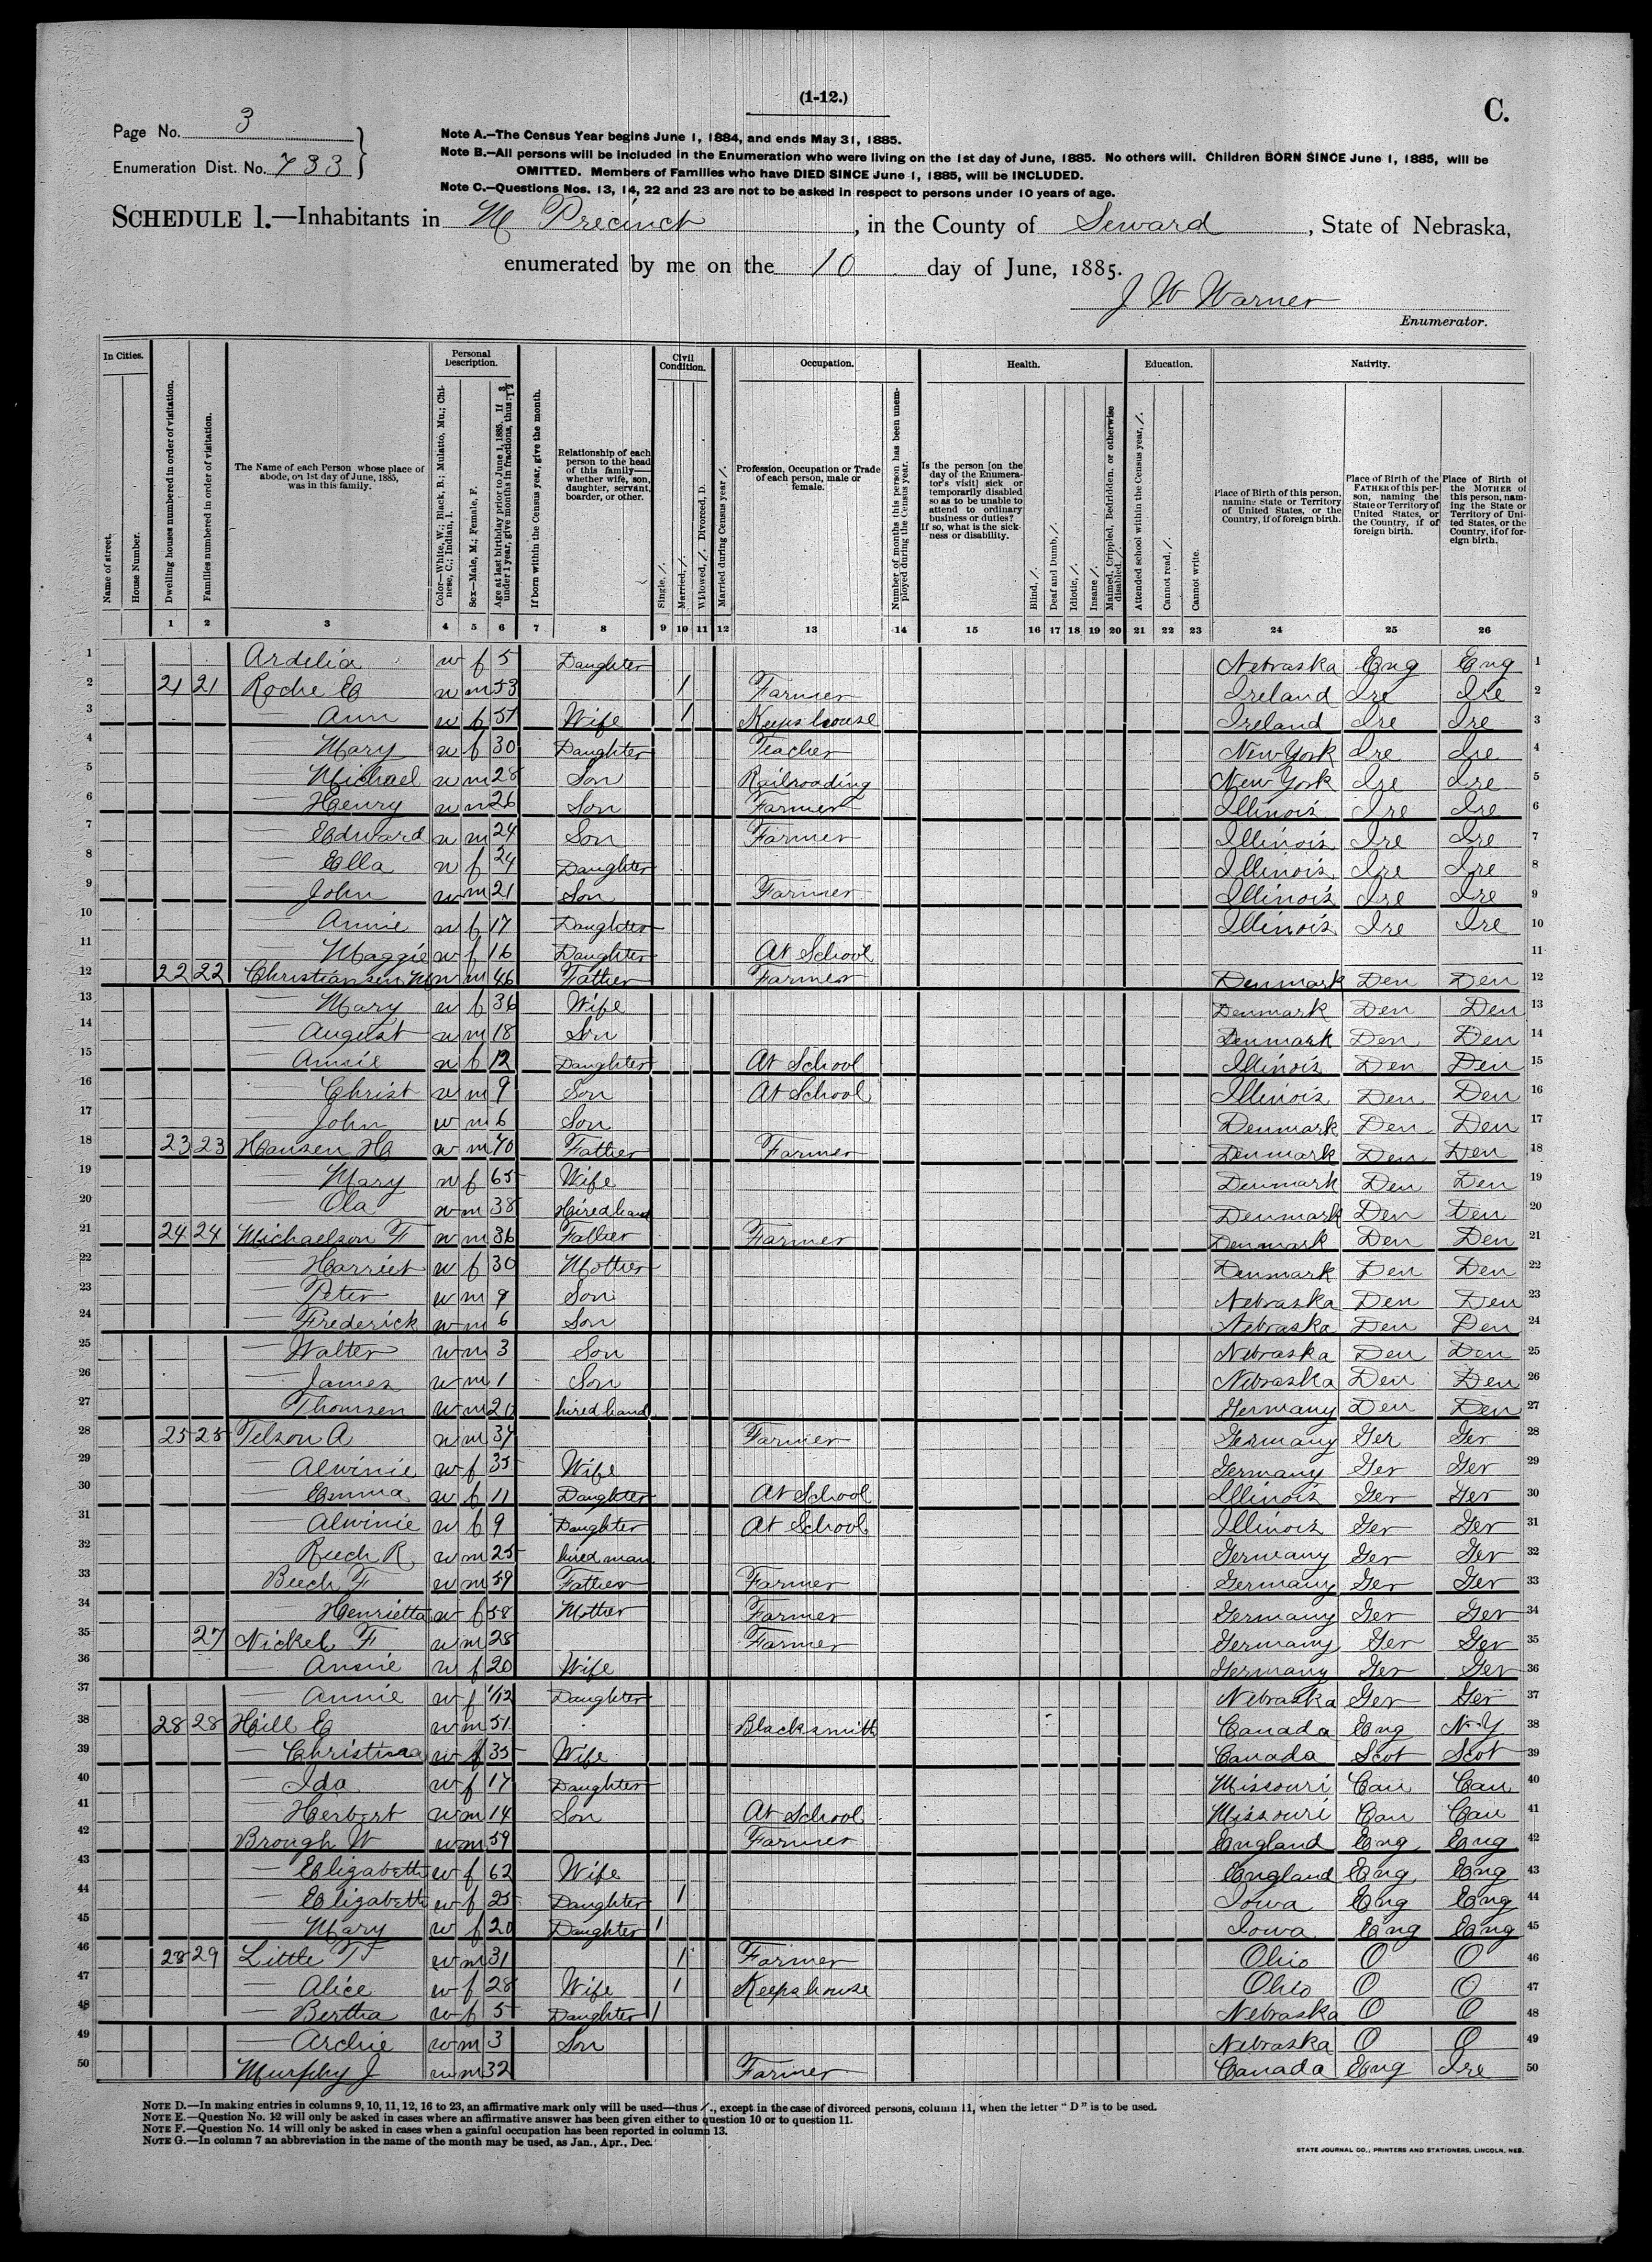 (1-12.)
C.
Page No. 3
Enumeration Dist. No. 733
Note A.—The Census Year begins June 1, 1884, and ends May 31, 1885.
Note B.—All persons will be included in the Enumeration who were living on the 1st day of June, 1885. No others will. Children BORN SINCE June 1, 1885, will be
OMITTED. Members of Families who have DIED SINCE June 1, 1885, will be INCLUDED.
Note C.—Questions Nos. 13, 14, 22 and 23 are not to be asked in respect to persons under 10 years of age.
SCHEDULE 1.—Inhabitants in M Precinct, in the County of Seward, State of Nebraska,
enumerated by me on the 10 day of June, 1885.
J W Warner
Enumerator.
In Cities. Personal Description. Civil Condition. Occupation. Health. Education. Nativity.
Name of street.
House Number.
Dwelling houses numbered in order of visitation.
Families numbered in order of visitation.
The Name of each Person whose place of abode, on 1st day of June, 1885, was in this family.
Color—White, W.; Black, B.; Mulatto, Mu.; Chinese, C.; Indian, I.
Sex—Male, M.; Female, F.
Age at last birthday prior to June 1, 1885. If under 1 year, give months in fractions, thus: 3/12
If born within the Census year, give the month.
Relationship of each person to the head of this family—whether wife, son, daughter, servant, boarder, or other.
Single, /.
Married, /.
Widowed, /. Divorced, D.
Married during Census year /.
Profession, Occupation or Trade of each person, male or female.
Number of months this person has been unemployed during the Census year.
Is the person [on the day of the Enumerator's visit] sick or temporarily disabled so as to be unable to attend to ordinary business or duties? If so, what is the sickness or disability.
Blind, /.
Deaf and Dumb, /.
Idiotic, /.
Insane /.
Maimed, Crippled, Bedridden, or otherwise disabled, /.
Attended school within the Census year, /.
Cannot read, /.
Cannot write.
Place of Birth of this person, naming State or Territory of United States, or the Country, if of foreign birth.
Place of Birth of the FATHER of this person, naming the State or Territory of United States, or the Country, if of foreign birth.
Place of Birth of the MOTHER of this person, naming the State or Territory of United States, or the Country, if of foreign birth.
1 2 3 4 5 6 7 8 9 10 11 12 13 14 15 16 17 18 19 20 21 22 23 24 25 26
1 Ardelia w f 5 Daughter Nebraska Eng Eng 1
2 21 21 Roche E w m 53 / Farmer Ireland Ire Ire 2
3 — Ann w f 51 Wife / Keeps house Ireland Ire Ire 3
4 — Mary w f 30 Daughter Teacher New York Ire Ire 4
5 — Michael w m 28 Son Railroading New York Ire Ire 5
6 — Henry w m 26 Son Farmer Illinois Ire Ire 6
7 — Edward w m 24 Son Farmer Illinois Ire Ire 7
8 — Ella w f 24 Daughter Illinois Ire Ire 8
9 — John w m 21 Son Farmer Illinois Ire Ire 9
10 — Annie w f 17 Daughter Illinois Ire Ire 10
11 — Maggie w f 16 Daughter At School 11
12 22 22 Christiansen M w m 46 Father Farmer Denmark Den Den 12
13 — Mary w f 36 Wife Denmark Den Den 13
14 — August w m 18 Son Denmark Den Den 14
15 — Annie w f 12 Daughter At School Illinois Den Den 15
16 — Christ w m 9 Son At School Illinois Den Den 16
17 — John w m 6 Son Denmark Den Den 17
18 23 23 Hansen H w m 70 Father Farmer Denmark Den Den 18
19 — Mary w f 65 Wife Denmark Den Den 19
20 — Ola w m 38 Hired hand Denmark Den Den 20
21 24 24 Michaelson F w m 36 Father Farmer Denmark Den Den 21
22 — Harriet w f 30 Mother Denmark Den Den 22
23 — Peter w m 9 Son Nebraska Den Den 23
24 — Frederick w m 6 Son Nebraska Den Den 24
25 — Walter w m 3 Son Nebraska Den Den 25
26 — James w m 1 Son Nebraska Den Den 26
27 — Thomsen w m 20 hired hand Germany Den Den 27
28 25 25 Telzon A w m 34 Farmer Germany Ger Ger 28
29 — Alwinie w f 35 Wife Germany Ger Ger 29
30 — Emma w f 11 Daughter At School Illinois Ger Ger 30
31 — Alwinie w f 9 Daughter At School Illinois Ger Ger 31
32 R w m 25 hired man Germany Ger Ger 32
33 Beech F w m 59 Father Farmer Germany Ger Ger 33
34 — Henrietta w f 58 Mother Farmer Germany Ger Ger 34
35 27 Nickel F w m 28 Farmer Germany Ger Ger 35
36 — Annie w f 20 Wife Germany Ger Ger 36
37 — Annie w f 1/12 Daughter Nebraska Ger Ger 37
38 28 28 Hill E w m 51 Blacksmith Canada Eng N.Y 38
39 — Christina w f 35 Wife Canada Scot Scot 39
40 — Ida w f 17 Daughter Missouri Can Can 40
41 — Herbert w m 14 Son At School Missouri Can Can 41
42 Brough W w m 59 Farmer England Eng Eng 42
43 — Elizabeth w f 62 Wife England Eng Eng 43
44 — Elizabeth w f 25 Daughter / Iowa Eng Eng 44
45 — Mary w f 20 Daughter / Iowa Eng Eng 45
46 28 29 Little T w m 31 / Farmer Ohio O O 46
47 — Alice w f 28 Wife / Keeps house Ohio O O 47
48 — Bertha w f 5 Daughter / Nebraska O O 48
49 — Archie w m 3 Son Nebraska O O 49
50 Murphy J w m 32 Farmer Canada Eng Ire 50
NOTE D.—In making entries in columns 9, 10, 11, 12, 16 to 23, an affirmative mark only will be used—thus /., except in the case of divorced persons, column 11, when the letter "D" is to be used.
NOTE E.—Question No. 12 will only be asked in cases where an affirmative answer has been given either to question 10 or to question 11.
NOTE F.—Question No. 14 will only be asked in cases when a gainful occupation has been reported in column 13.
NOTE G.—In column 7 an abbreviation in the name of the month may be used, as Jan., Apr., Dec.
STATE JOURNAL CO., PRINTERS AND STATIONERS, LINCOLN, NEB.